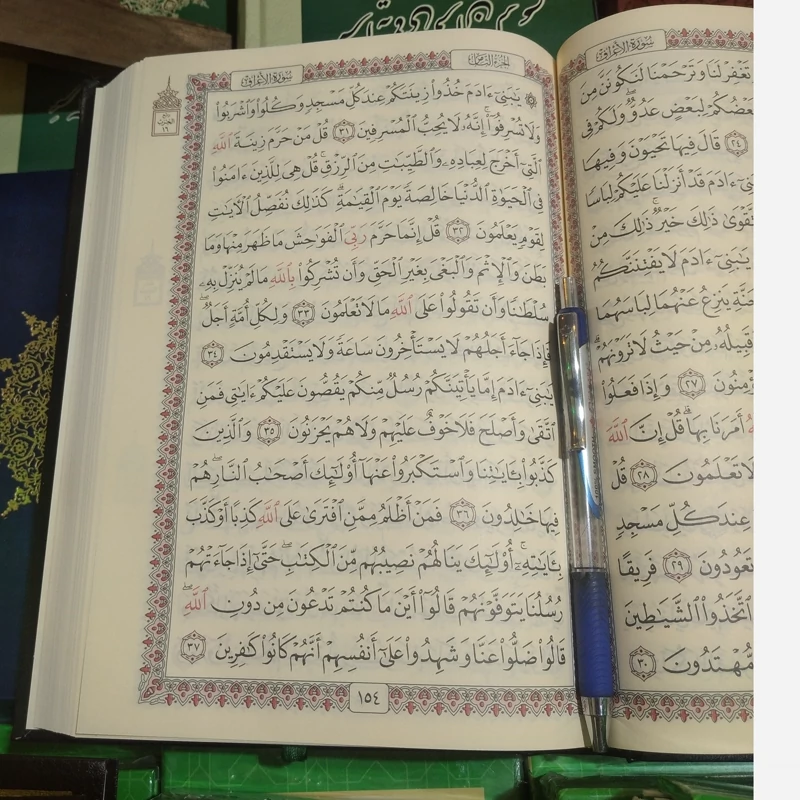 سُورَةُ الأَعْرَافِ
تَغْفِرْ لَنَا وَتَرْحَمْنَا لَنَكُونَنَّ مِنَ
بَعْضُكُمْ لِبَعْضٍ عَدُوٌّ وَلَكُمْ فِى
﴿٢٤﴾ قَالَ فِيهَا تَحْيَوْنَ وَفِيهَا
ءَادَمَ قَدْ أَنزَلْنَا عَلَيْكُمْ لِبَاسًا
ذَٰلِكَ خَيْرٌ ذَٰلِكَ مِنْ
يَـٰبَنِىٓ ءَادَمَ لَا يَفْتِنَنَّكُمُ
يَنزِعُ عَنْهُمَا لِبَاسَهُمَا
وَقَبِيلُهُۥ مِنْ حَيْثُ لَا تَرَوْنَهُمْ
﴿٢٧﴾ وَإِذَا فَعَلُوا۟
أَمَرَنَا بِهَا قُلْ إِنَّ ٱللَّهَ
لَا تَعْلَمُونَ ﴿٢٨﴾ قُلْ
عِندَ كُلِّ مَسْجِدٍ
تَعُودُونَ ﴿٢٩﴾ فَرِيقًا
ٱتَّخَذُوا۟ ٱلشَّيَـٰطِينَ
مُّهْتَدُونَ ﴿٣٠﴾
الجزء الثامن
سُورَةُ الأَعْرَافِ
يَـٰبَنِىٓ ءَادَمَ خُذُوا۟ زِينَتَكُمْ عِندَ كُلِّ مَسْجِدٍ وَكُلُوا۟ وَٱشْرَبُوا۟
وَلَا تُسْرِفُوٓا۟ إِنَّهُۥ لَا يُحِبُّ ٱلْمُسْرِفِينَ ﴿٣١﴾ قُلْ مَنْ حَرَّمَ زِينَةَ ٱللَّهِ
ٱلَّتِىٓ أَخْرَجَ لِعِبَادِهِۦ وَٱلطَّيِّبَـٰتِ مِنَ ٱلرِّزْقِ قُلْ هِىَ لِلَّذِينَ ءَامَنُوا۟
فِى ٱلْحَيَوٰةِ ٱلدُّنْيَا خَالِصَةً يَوْمَ ٱلْقِيَـٰمَةِ كَذَٰلِكَ نُفَصِّلُ ٱلْـَٔايَـٰتِ
لِقَوْمٍ يَعْلَمُونَ ﴿٣٢﴾ قُلْ إِنَّمَا حَرَّمَ رَبِّىَ ٱلْفَوَٰحِشَ مَا ظَهَرَ مِنْهَا وَمَا
بَطَنَ وَٱلْإِثْمَ وَٱلْبَغْىَ بِغَيْرِ ٱلْحَقِّ وَأَن تُشْرِكُوا۟ بِٱللَّهِ مَا لَمْ يُنَزِّلْ بِهِۦ
سُلْطَـٰنًا وَأَن تَقُولُوا۟ عَلَى ٱللَّهِ مَا لَا تَعْلَمُونَ ﴿٣٣﴾ وَلِكُلِّ أُمَّةٍ أَجَلٌ
فَإِذَا جَآءَ أَجَلُهُمْ لَا يَسْتَأْخِرُونَ سَاعَةً وَلَا يَسْتَقْدِمُونَ ﴿٣٤﴾
يَـٰبَنِىٓ ءَادَمَ إِمَّا يَأْتِيَنَّكُمْ رُسُلٌ مِّنكُمْ يَقُصُّونَ عَلَيْكُمْ ءَايَـٰتِى فَمَنِ
ٱتَّقَىٰ وَأَصْلَحَ فَلَا خَوْفٌ عَلَيْهِمْ وَلَا هُمْ يَحْزَنُونَ ﴿٣٥﴾ وَٱلَّذِينَ
كَذَّبُوا۟ بِـَٔايَـٰتِنَا وَٱسْتَكْبَرُوا۟ عَنْهَآ أُو۟لَـٰٓئِكَ أَصْحَـٰبُ ٱلنَّارِ هُمْ
فِيهَا خَـٰلِدُونَ ﴿٣٦﴾ فَمَنْ أَظْلَمُ مِمَّنِ ٱفْتَرَىٰ عَلَى ٱللَّهِ كَذِبًا أَوْ كَذَّبَ
بِـَٔايَـٰتِهِۦٓ أُو۟لَـٰٓئِكَ يَنَالُهُمْ نَصِيبُهُم مِّنَ ٱلْكِتَـٰبِ حَتَّىٰٓ إِذَا جَآءَتْهُمْ
رُسُلُنَا يَتَوَفَّوْنَهُمْ قَالُوٓا۟ أَيْنَ مَا كُنتُمْ تَدْعُونَ مِن دُونِ ٱللَّهِ
قَالُوا۟ ضَلُّوا۟ عَنَّا وَشَهِدُوا۟ عَلَىٰٓ أَنفُسِهِمْ أَنَّهُمْ كَانُوا۟ كَـٰفِرِينَ ﴿٣٧﴾
١٥٤